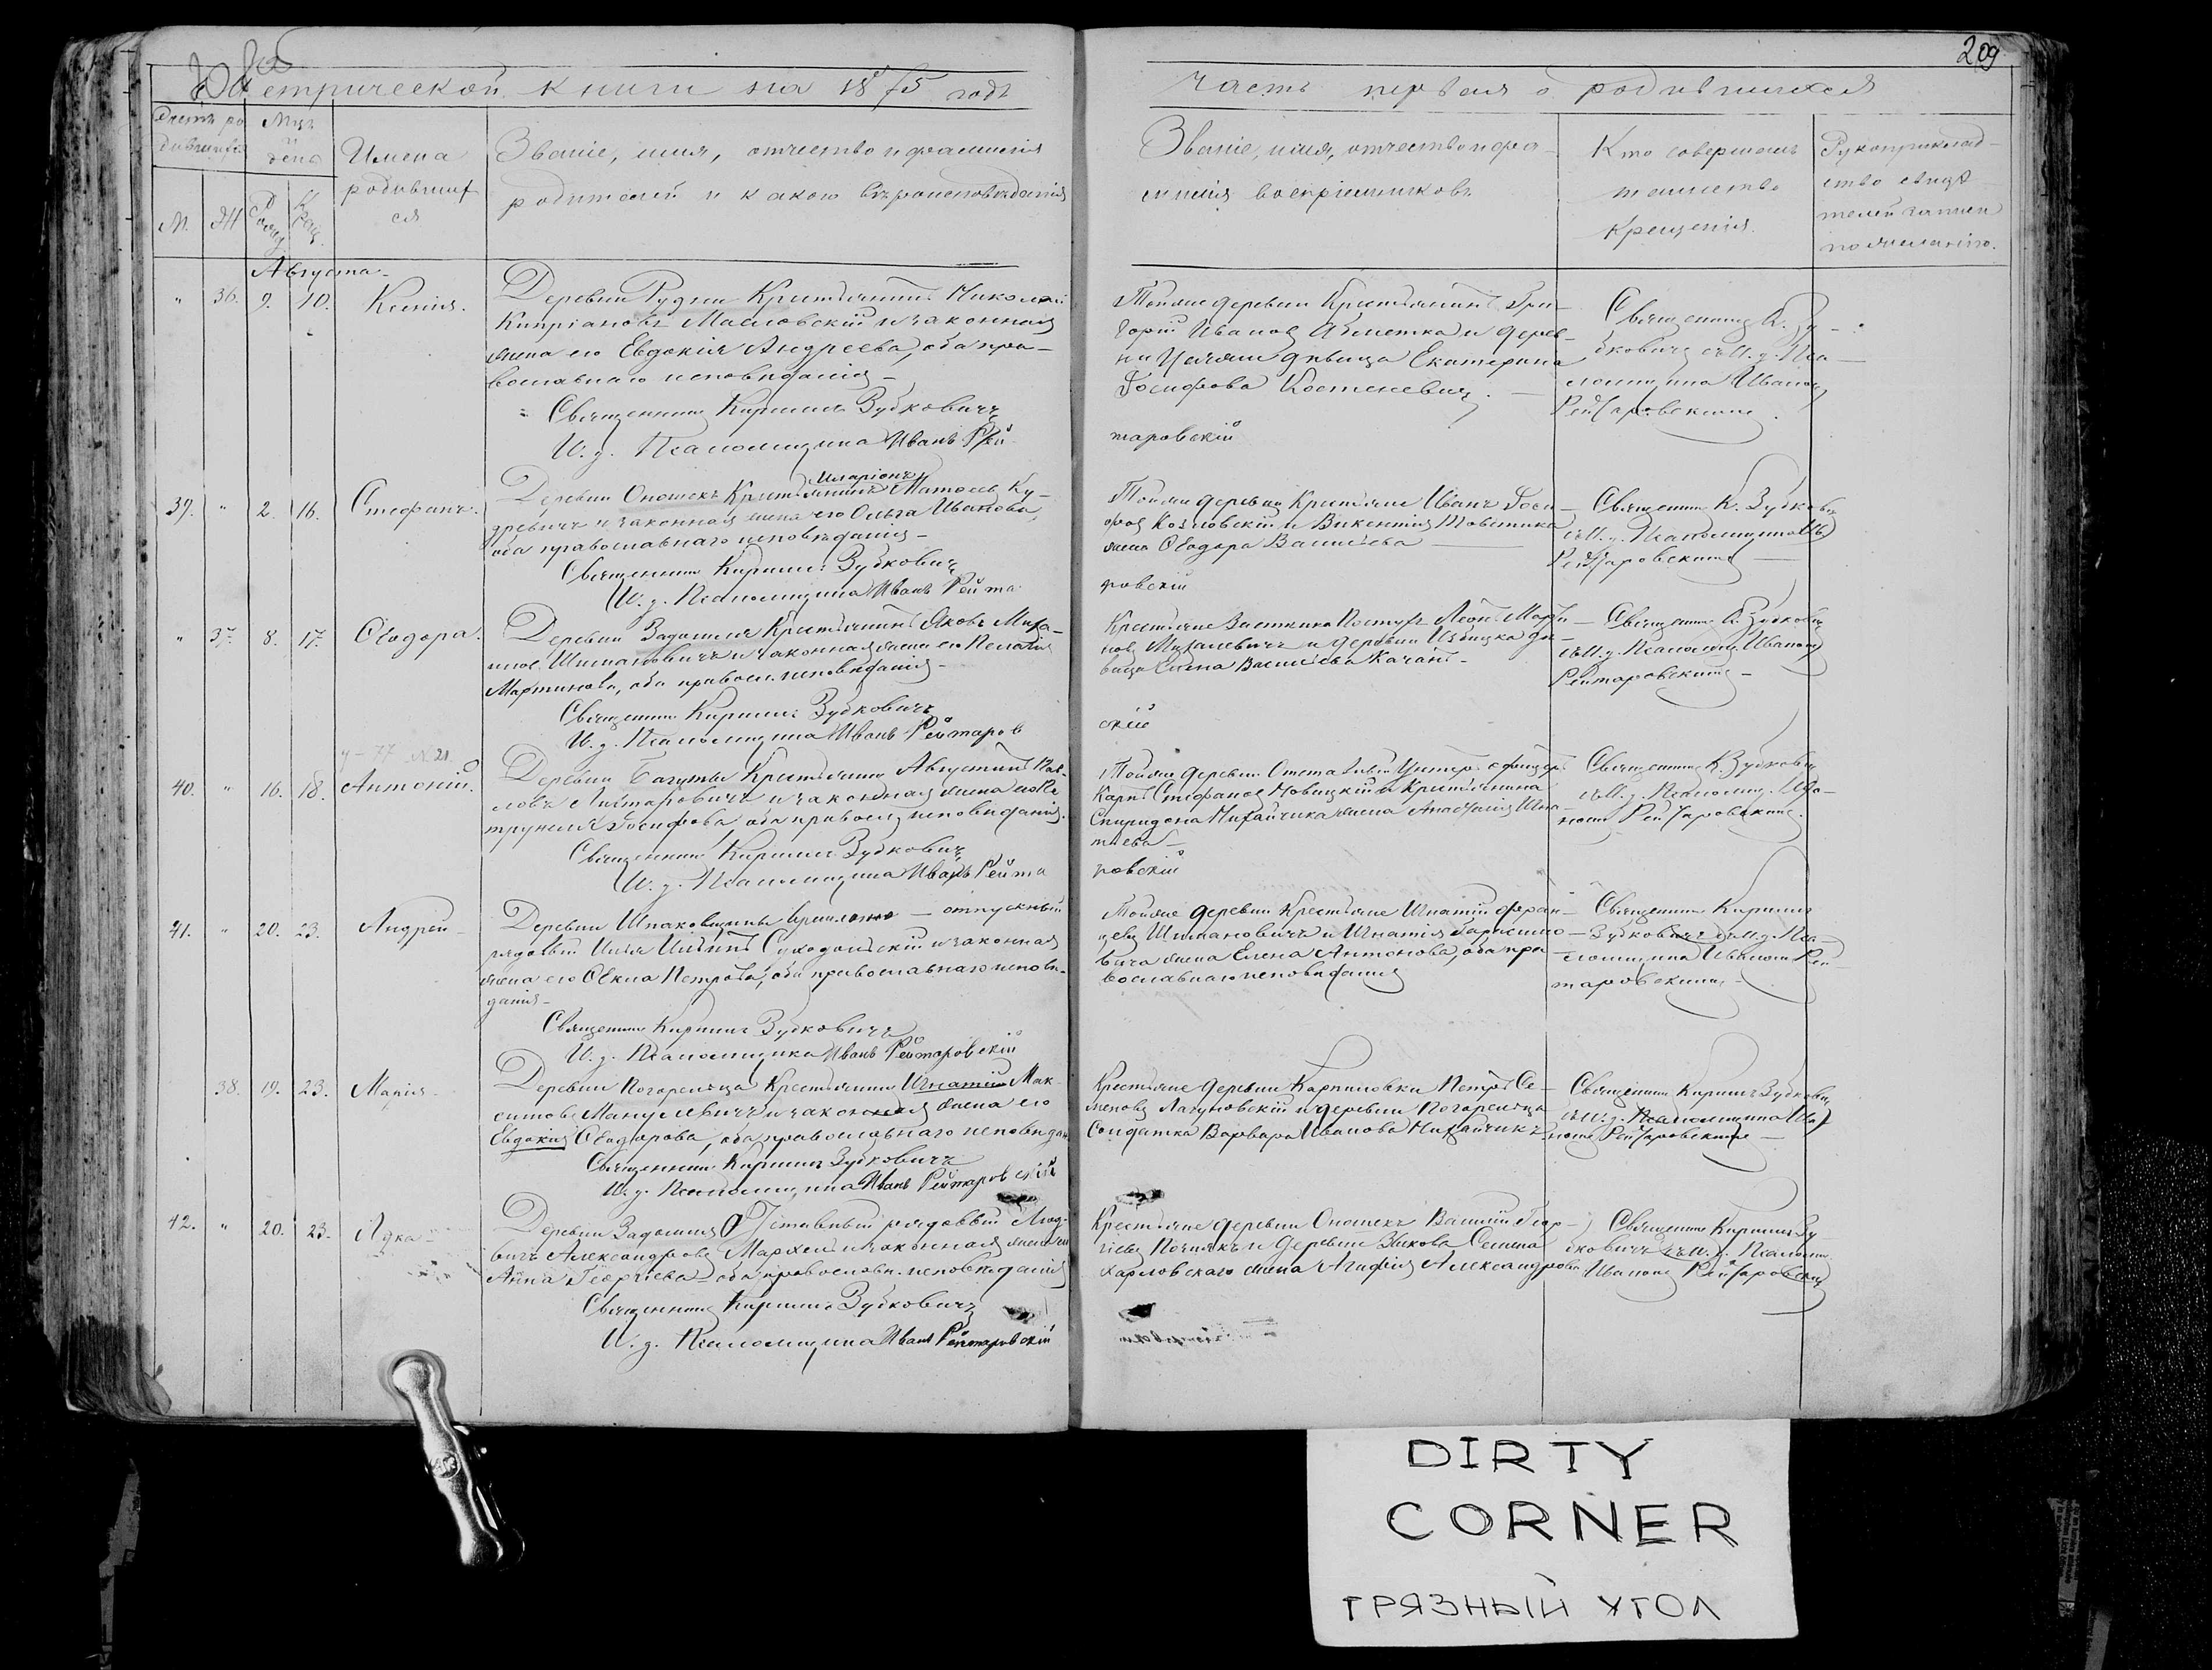 209
Метрической книги на 1875 годъ
часть первая о родившихся
Счетъ ро
дившихся
Мцъ
и
день
М.
Ж
Рожд
Крещ.
Имена
родивших
ся
Званіе, имя, отчество и фамилія
родителей и какого вѣроисповѣданія
Званіе, имя, отчество и фа-
милія воспріемниковъ
Кто совершалъ
таинство
крещенія.
Рукоприклад-
ство свидѣ
телей записи
по желанію.
Августа
" 36. 9. 10. Ксенія.
Деревни Рудни Крестьянинъ Николай
Кипріановъ Масловскій и законная
жена его Евдокія Андреева, оба пра-
вославнаго исповѣданія-
Священникъ Кириллъ Зубковичъ
И. д. Псаломщика Иванъ Рей
таровскій
Тойже деревни Крестьянинъ Гри-
горій Ивановъ и дерев-
ни дѣвица Екатерина
Іосифова Костеневичъ.
Священникъ К. Зу-
бковичъ съ И. д. Пса-
ломщика Иваномъ
Рейтаровскимъ.
39. " 2. 16. Стефанъ.
Иларіонъ
Деревни Опошекъ Крестьянинъ Матвеевъ Ку-
древичъ и законная жена его Ольга Иванова,
оба православнаго исповѣданія-
Священникъ Кириллъ Зубковичъ
И. д. Псаломщика Иванъ Рейта
ровскій
Тойже деревни Крестьяне Иванъ Іоси-
фовъ Козловскій и Викентія
жена Ѳеодора Васильева
Священникъ К. Зубковичъ
съ И. д. Псаломщика Ив
Рейтаровскимъ
" 37. 8. 17. Ѳеодора.
Деревни Задашня Крестьянинъ Яковъ Миха-
иловъ Шимановичъ и законная жена его Пелагія
Мартинова, оба правосл. исповѣданія-
Священникъ Кириллъ Зубковичъ
И. д. Псаломщика Иванъ Рейтаров
скій
Крестьяне Застѣнка Леонъ Марти-
новъ и деревни Избицка дѣ-
вица Елена Васильева Качанъ-
Священникъ К. Зубковичъ
съ И. д. Псаломщ. Иваномъ
Рейтаровскимъ-
у-77 N 21.
40. " 16. 18. Антоній.
Деревни Багуты Крестьянинъ Августинъ Пав-
ловъ и законная жена его Пе
трунеля Іосифова оба правосл исповѣданія.
Священникъ Кириллъ Зубковичъ
И. д. Псаломщика Иванъ Рейта
ровскій
Тойже деревни Отставной Унтеръ-офицеръ
Карпъ Стефановъ Новицкій и Крестьянина
Спиридона Михайчика жена Анастасія Игна-
тіева-
Священникъ К. Зубковичъ
съ И. д. Псаломщ. Ива-
номъ Рейтаровскимъ.
41. " 20. 23. Андрей-
Деревни Шпаковщины - отпускный
рядовый Илья Ивановъ Суходольскій и законная
жена его Ѳекла Петрова, оба православнаго исповѣ-
данія-
Священникъ Кириллъ Зубковичъ
И. д. Псаломщика Иванъ Рейтаровскій
Тойже деревни Крестьяне Игнатій Фран-
цевъ Шимановичъ и Игнатія Гарасимо-
вича жена Елена Антонова, оба пра
вославнаго исповѣданія
Священникъ Кириллъ
Зубковичъ съ И. д. Пса-
ломщика Иваномъ Рей-
таровскимъ-
38. 19. 23. Марія-
Деревни Погорельца Крестьянинъ Игнатій Мак-
симовъ Манулевичъ и законная жена его
Евдокія Ѳеодорова, оба православнаго исповѣдан
Священникъ Кириллъ Зубковичъ
И. д. Псаломщика Иванъ Рейтаровскій
Крестьяне деревни Карпиловки Петръ Се-
меновъ Лагуновскій и деревни Погорельца
Солдатка Варвара Иванова Михайчикъ
Священникъ Кириллъ Зубковичъ
съ И. д. Псаломщика Ива
номъ Рейтаровскимъ-
42. " 20. 23. Лука-
Деревни Задашня Отставный рядовый Люд-
вигъ Александровъ Мархель и законная жена его
Анна Георгіева оба православн. исповѣданія
Священникъ Кириллъ Зубковичъ
И. д. Псаломщика Иванъ Рейтаровскій
Крестьяне деревни Опошекъ Василій Геор-
гіевъ и деревни Зыкова Семена
Харловскаго жена Агафія Александрова
Священникъ Кириллъ Зу
бковичъ съ И. д. Псаломщ.
Иваномъ Рейтаровскимъ
DIRTY
CORNER
ГРЯЗНЫЙ УГОЛ